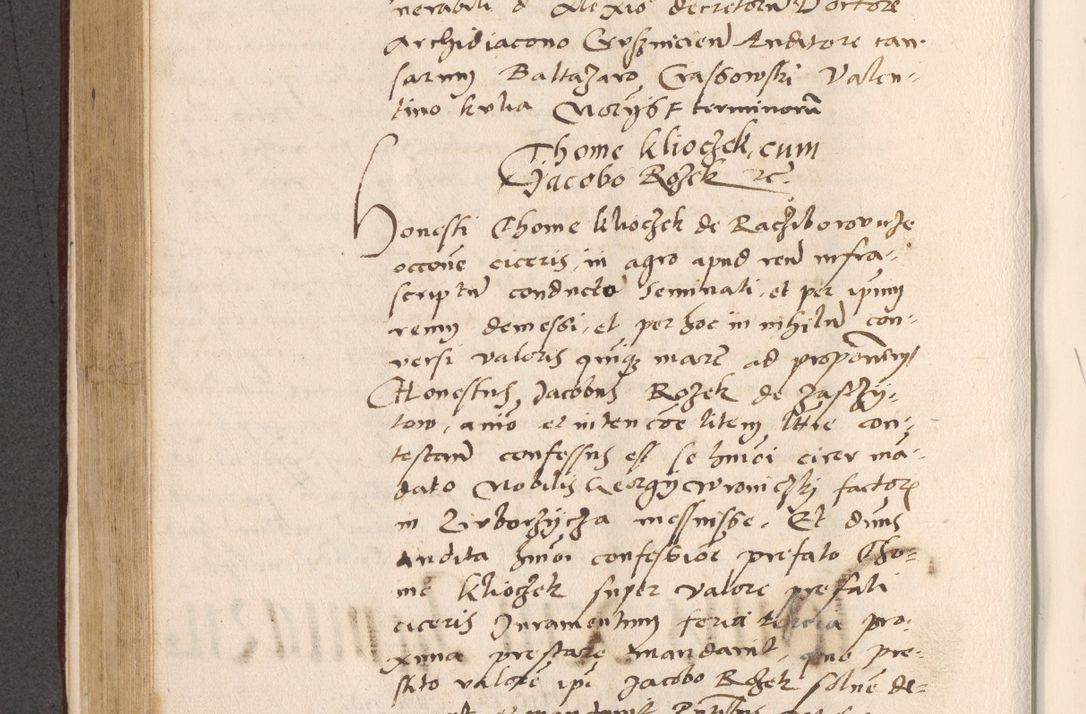 nerabili d Alexio decretorũ Doctore
Archidiacono Auditore cau-
sarum Baltazaro Crassowski Valen-
tino kulia Notrijs terminorũ
Thome klioczek cum
Jacobo Rozek rc
Honesti Thome klioczek de Racziborovicze
occoñe ciceris in agro apud reũ infra-
scriptũ conducto seminati et per ipsum
reum demessi et per hoc in nihilũ con-
versi valoris quinq marc̃ ad proponem
Honestus Jacobus Rozek de
tow, aĩo et intencõe litem ltĩe con-
testañ confessus est se hmõi cicer mã-
dato Nobilis Georgy Wroniczski factorẽ
in messuisse. Et dũns
audita hmõi confessiõe prefato Tho-
me klioczek super valore prefati
ciceris Juramentum feria tercia pro-
xima prestare mandavit, quo pre-
stito valorẽ ipĩ Jacobo Rozek solnẽ de-